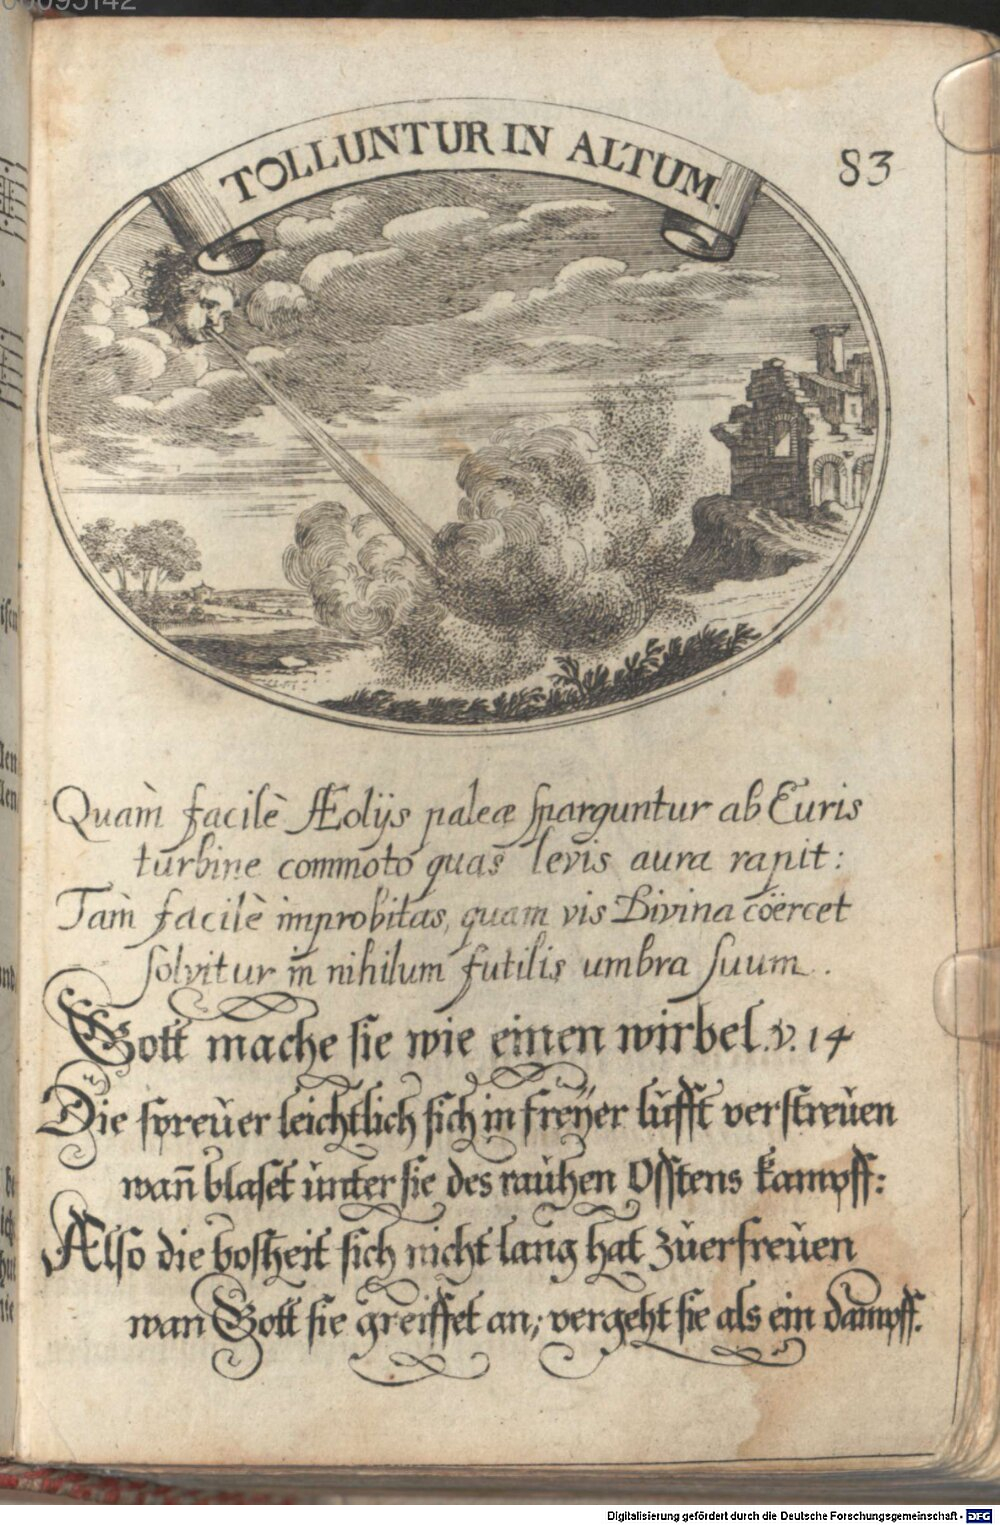 TOLLUNTUR IN ALTUM.
83
Quàm facilè Æolijs paleæ sparguntur ab Euris
turbine commoto quas levis aura rapit:
Tàm facilè improbitas, quam vis Divina coërcet
solvitur in nihilum futilis umbra suum.
Gott mache sie wie einen wirbel. v. 14
Die spreüer leichtlich sich in freÿer lüfft verstreüen
wañ blaset ünter sie des raühen Osstens kampff:
Also die bosheit sich nicht lang hat züerfreüen
wan Gott sie greiffet an; vergeht sie als ein dampff.
Digitalisierung gefördert durch die Deutsche Forschungsgemeinschaft - DFG